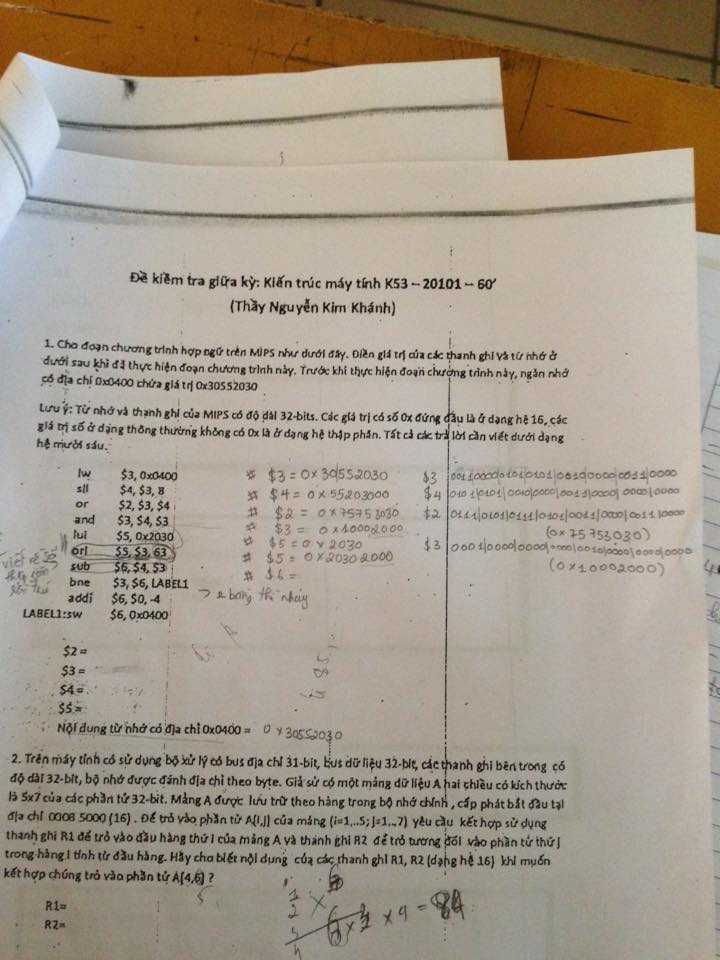 Đề kiểm tra giữa kỳ: Kiến trúc máy tính K53 – 20101 – 60'
(Thầy Nguyễn Kim Khánh)
1. Cho đoạn chương trình hợp ngữ trên MIPS như dưới đây. Điền giá trị của các thanh ghi và từ nhớ ở
dưới sau khi đã thực hiện đoạn chương trình này. Trước khi thực hiện đoạn chương trình này, ngăn nhớ
có địa chỉ 0x0400 chứa giá trị 0x30552030
Lưu ý: Từ nhớ và thanh ghi của MIPS có độ dài 32-bits. Các giá trị có số 0x đứng đầu là ở dạng hệ 16, các
giá trị số ở dạng thông thường không có 0x là ở dạng hệ thập phân. Tất cả các trả lời cần viết dưới dạng
hệ mười sáu.
lw $3, 0x0400 # $3 = 0x30552030 $3 0011|0000|0101|0101|0010|0000|0011|0000
sll $4, $3, 8 # $4 = 0x55203000 $4 0101|0101|0010|0000|0011|0000|0000|0000
or $2, $3, $4 # $2 = 0x75753030 $2 0111|0101|0111|0101|0011|0000|0011|0000
and $3, $4, $3 # $3 = 0x10002000 (0x75753030)
lui $5, 0x2030 # $5 = 0x2030 $3 0001|0000|0000|0000|0010|0000|0000|0000
ori $5, $3, 63 # $5 = 0x20302000 (0x10002000)
sub $6, $4, $3 # $6 =
bne $3, $6, LABEL1
addi $6, $0, -4 → bằng thì nhảy
LABEL1:sw $6, 0x0400
viết về số
$2 =
$3 =
$4 =
$5 =
Nội dung từ nhớ có địa chỉ 0x0400 = 0x30552030
2. Trên máy tính có sử dụng bộ xử lý có bus địa chỉ 31-bit, bus dữ liệu 32-bit, các thanh ghi bên trong có
độ dài 32-bit, bộ nhớ được đánh địa chỉ theo byte. Giả sử có một mảng dữ liệu A hai chiều có kích thước
là 5x7 của các phần tử 32-bit. Mảng A được lưu trữ theo hàng trong bộ nhớ chính , cấp phát bắt đầu tại
địa chỉ 0008 5000 (16) . Để trỏ vào phần tử A[i,j] của mảng (i=1,..5; j=1,..7) yêu cầu kết hợp sử dụng
thanh ghi R1 để trỏ vào đầu hàng thứ i của mảng A và thanh ghi R2 để trỏ tương đối vào phần tử thứ j
trong hàng i tính từ đầu hàng. Hãy cho biết nội dung của các thanh ghi R1, R2 (dạng hệ 16) khi muốn
kết hợp chúng trỏ vào phần tử A[4,6] ?
R1=
R2=
× 4 = 84